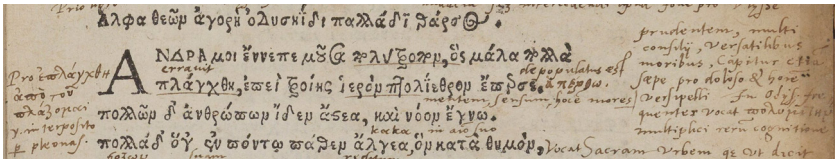 Αλφα θεῶν ἀγορὴ ὀδυσηΐδι παλλάδι θάρσος.
ΑΝΔΡΑ μοι ἔννεπε μοῦσα πολύτροπον, ὃς μάλα πολλὰ
erravit depopulatus est
πλάγχθη, ἐπεὶ τροίης ἱερὸν πτολίεθρον ἔπερσε. à πέρθω.
mentem, sensum, hoc è mores
πολλῶν δ' ἀνθρώπων ἴδεν ἄστεα, καὶ νόον ἔγνω.
κακα in aio suo
πολλὰ δ' ὅγ' ἐν πόντῳ πάθεν ἄλγεα, ὃν κατὰ θυμὸν,
Pro ἐπλάγχθη
ἀπὸ τοῦ
πλάζομαι
γ. interposito
p pleonas.
prudentem, multi
consilij, versatilibus
moribus, Capitur etiã
sæpe pro doloso &
versipelli
quenter vocat
multiplici rerũ cognitione
vocat Sacram Urbem qã ut dicit